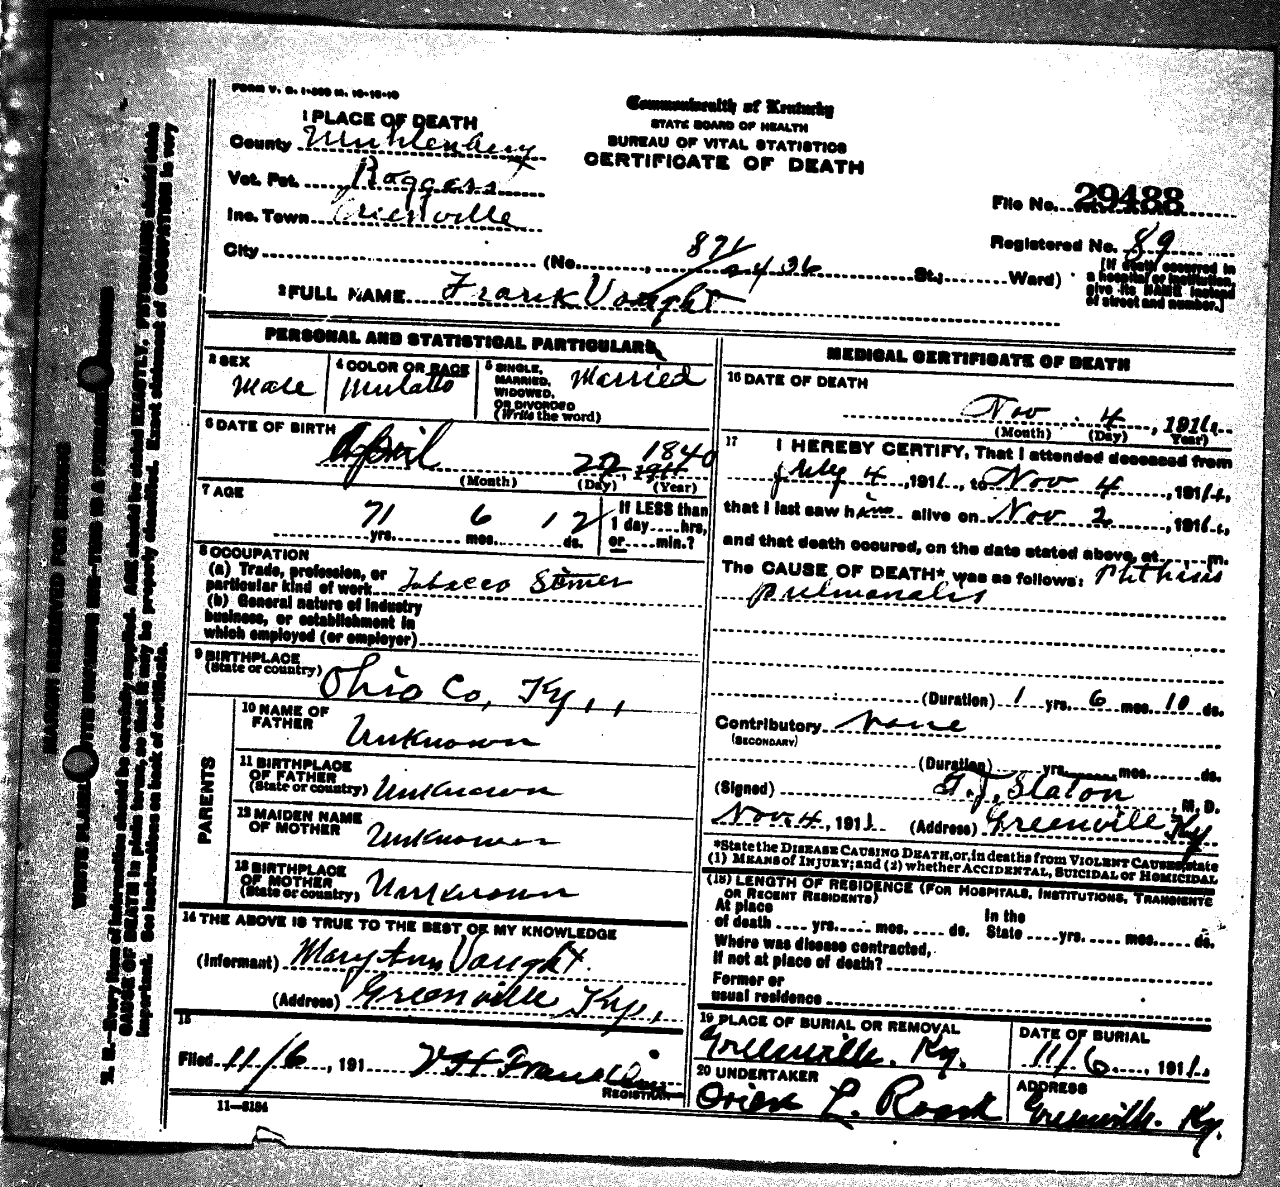 FORM V. S. 1-300 M. 10-16-10
Commonwealth of Kentucky
STATE BOARD OF HEALTH
BUREAU OF VITAL STATISTICS
CERTIFICATE OF DEATH
1 PLACE OF DEATH
County Muhlenburg
Vot. Pct. Roggers
Inc. Town Greenville
City (No. , St.; Ward)
871
File No. 29488
Registered No. 89
[If death occurred in
a hospital or institution,
give its NAME instead
of street and number.]
2 FULL NAME Frank Vaught
PERSONAL AND STATISTICAL PARTICULARS
3 SEX
Male
4 COLOR OR RACE
Mulatto
5 SINGLE,
MARRIED,
WIDOWED,
OR DIVORCED
(Write the word)
Married
6 DATE OF BIRTH
April 22, 1840
(Month) (Day) (Year)
7 AGE
71 yrs. 6 mos. 12 ds.
If LESS than
1 day.....hrs,
or.....min.?
8 OCCUPATION
(a) Trade, profession, or
particular kind of work Tobacco Stemer
(b) General nature of industry
business, or establishment in
which employed (or employer)
9 BIRTHPLACE
(State or country)
Ohio Co, Ky,,
PARENTS
10 NAME OF
FATHER
Unknown
11 BIRTHPLACE
OF FATHER
(State or country) Unknown
12 MAIDEN NAME
OF MOTHER
Unknown
13 BIRTHPLACE
OF MOTHER
(State or country) Unknown
14 THE ABOVE IS TRUE TO THE BEST OF MY KNOWLEDGE
(Informant) Mary Ann Vaught.
(Address) Greenville Ky,
15
Filed 11/6, 191 V H Franklin
REGISTRAR
11—5184
MEDICAL CERTIFICATE OF DEATH
16 DATE OF DEATH
Nov 4, 1911
(Month) (Day) Year)
17 I HEREBY CERTIFY, That I attended deceased from
July 4, 1911, to Nov 4, 1911,
that I last saw him alive on Nov 2, 1911,
and that death occured, on the date stated above, at ......m.
The CAUSE OF DEATH* was as follows: Phthisis
pulmonalis
(Duration) 1 yrs. 6 mos. 10 ds.
Contributory none
(SECONDARY)
(Duration) yrs. mos. ds.
(Signed) T. J. Slaton, M. D.
Nov 4, 1911 (Address) Greenville Ky
*State the DISEASE CAUSING DEATH, or, in deaths from VIOLENT CAUSES state
(1) MEANS of INJURY; and (2) whether ACCIDENTAL, SUICIDAL or HOMICIDAL
(18) LENGTH OF RESIDENCE (FOR HOSPITALS, INSTITUTIONS, TRANSIENTS
OR RECENT RESIDENTS)
At place
of death .... yrs. .... mos. .... ds.
In the
State ....yrs. .... mos. .... ds.
Where was disease contracted,
If not at place of death?
Former or
usual residence
19 PLACE OF BURIAL OR REMOVAL
Greenville. Ky.
DATE OF BURIAL
11/6, 1911.
20 UNDERTAKER
Orien L. Roark
ADDRESS
Greenville. Ky.
MARGIN RESERVED FOR BINDING
N. B.—Every item of information should be carefully supplied. AGE should be stated EXACTLY. PHYSICIANS should state
CAUSE OF DEATH in plain terms, so that it may be properly classified. Exact statement of OCCUPATION is very
important. See instructions on back of certificate.